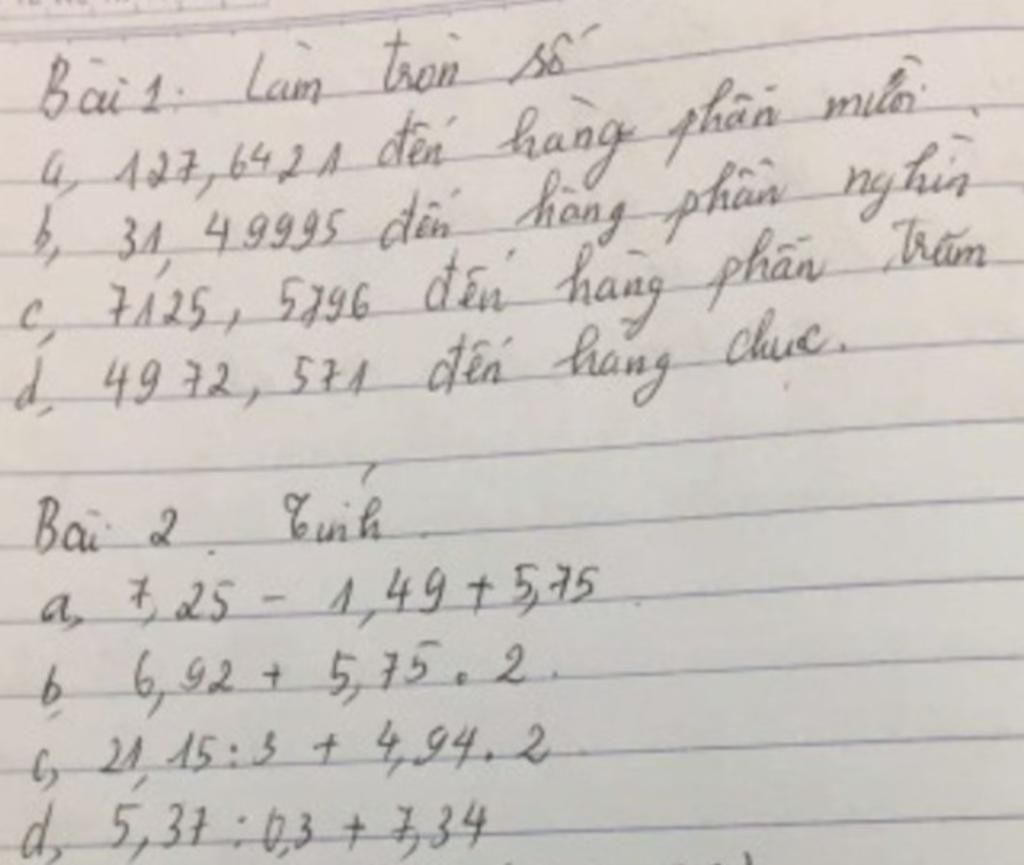 Bài 1. Làm tròn số
a, 127,6421 đến hàng phần mười.
b, 31,49995 đến hàng phần nghìn
c, 7125,5796 đến hàng phần trăm
d, 4972,571 đến hàng chục.
Bài 2. Tính
a, 7,25 - 1,49 + 5,75
b, 6,92 + 5,75 . 2.
c, 21,15 : 3 + 4,94 . 2
d, 5,37 : 0,3 + 7,34